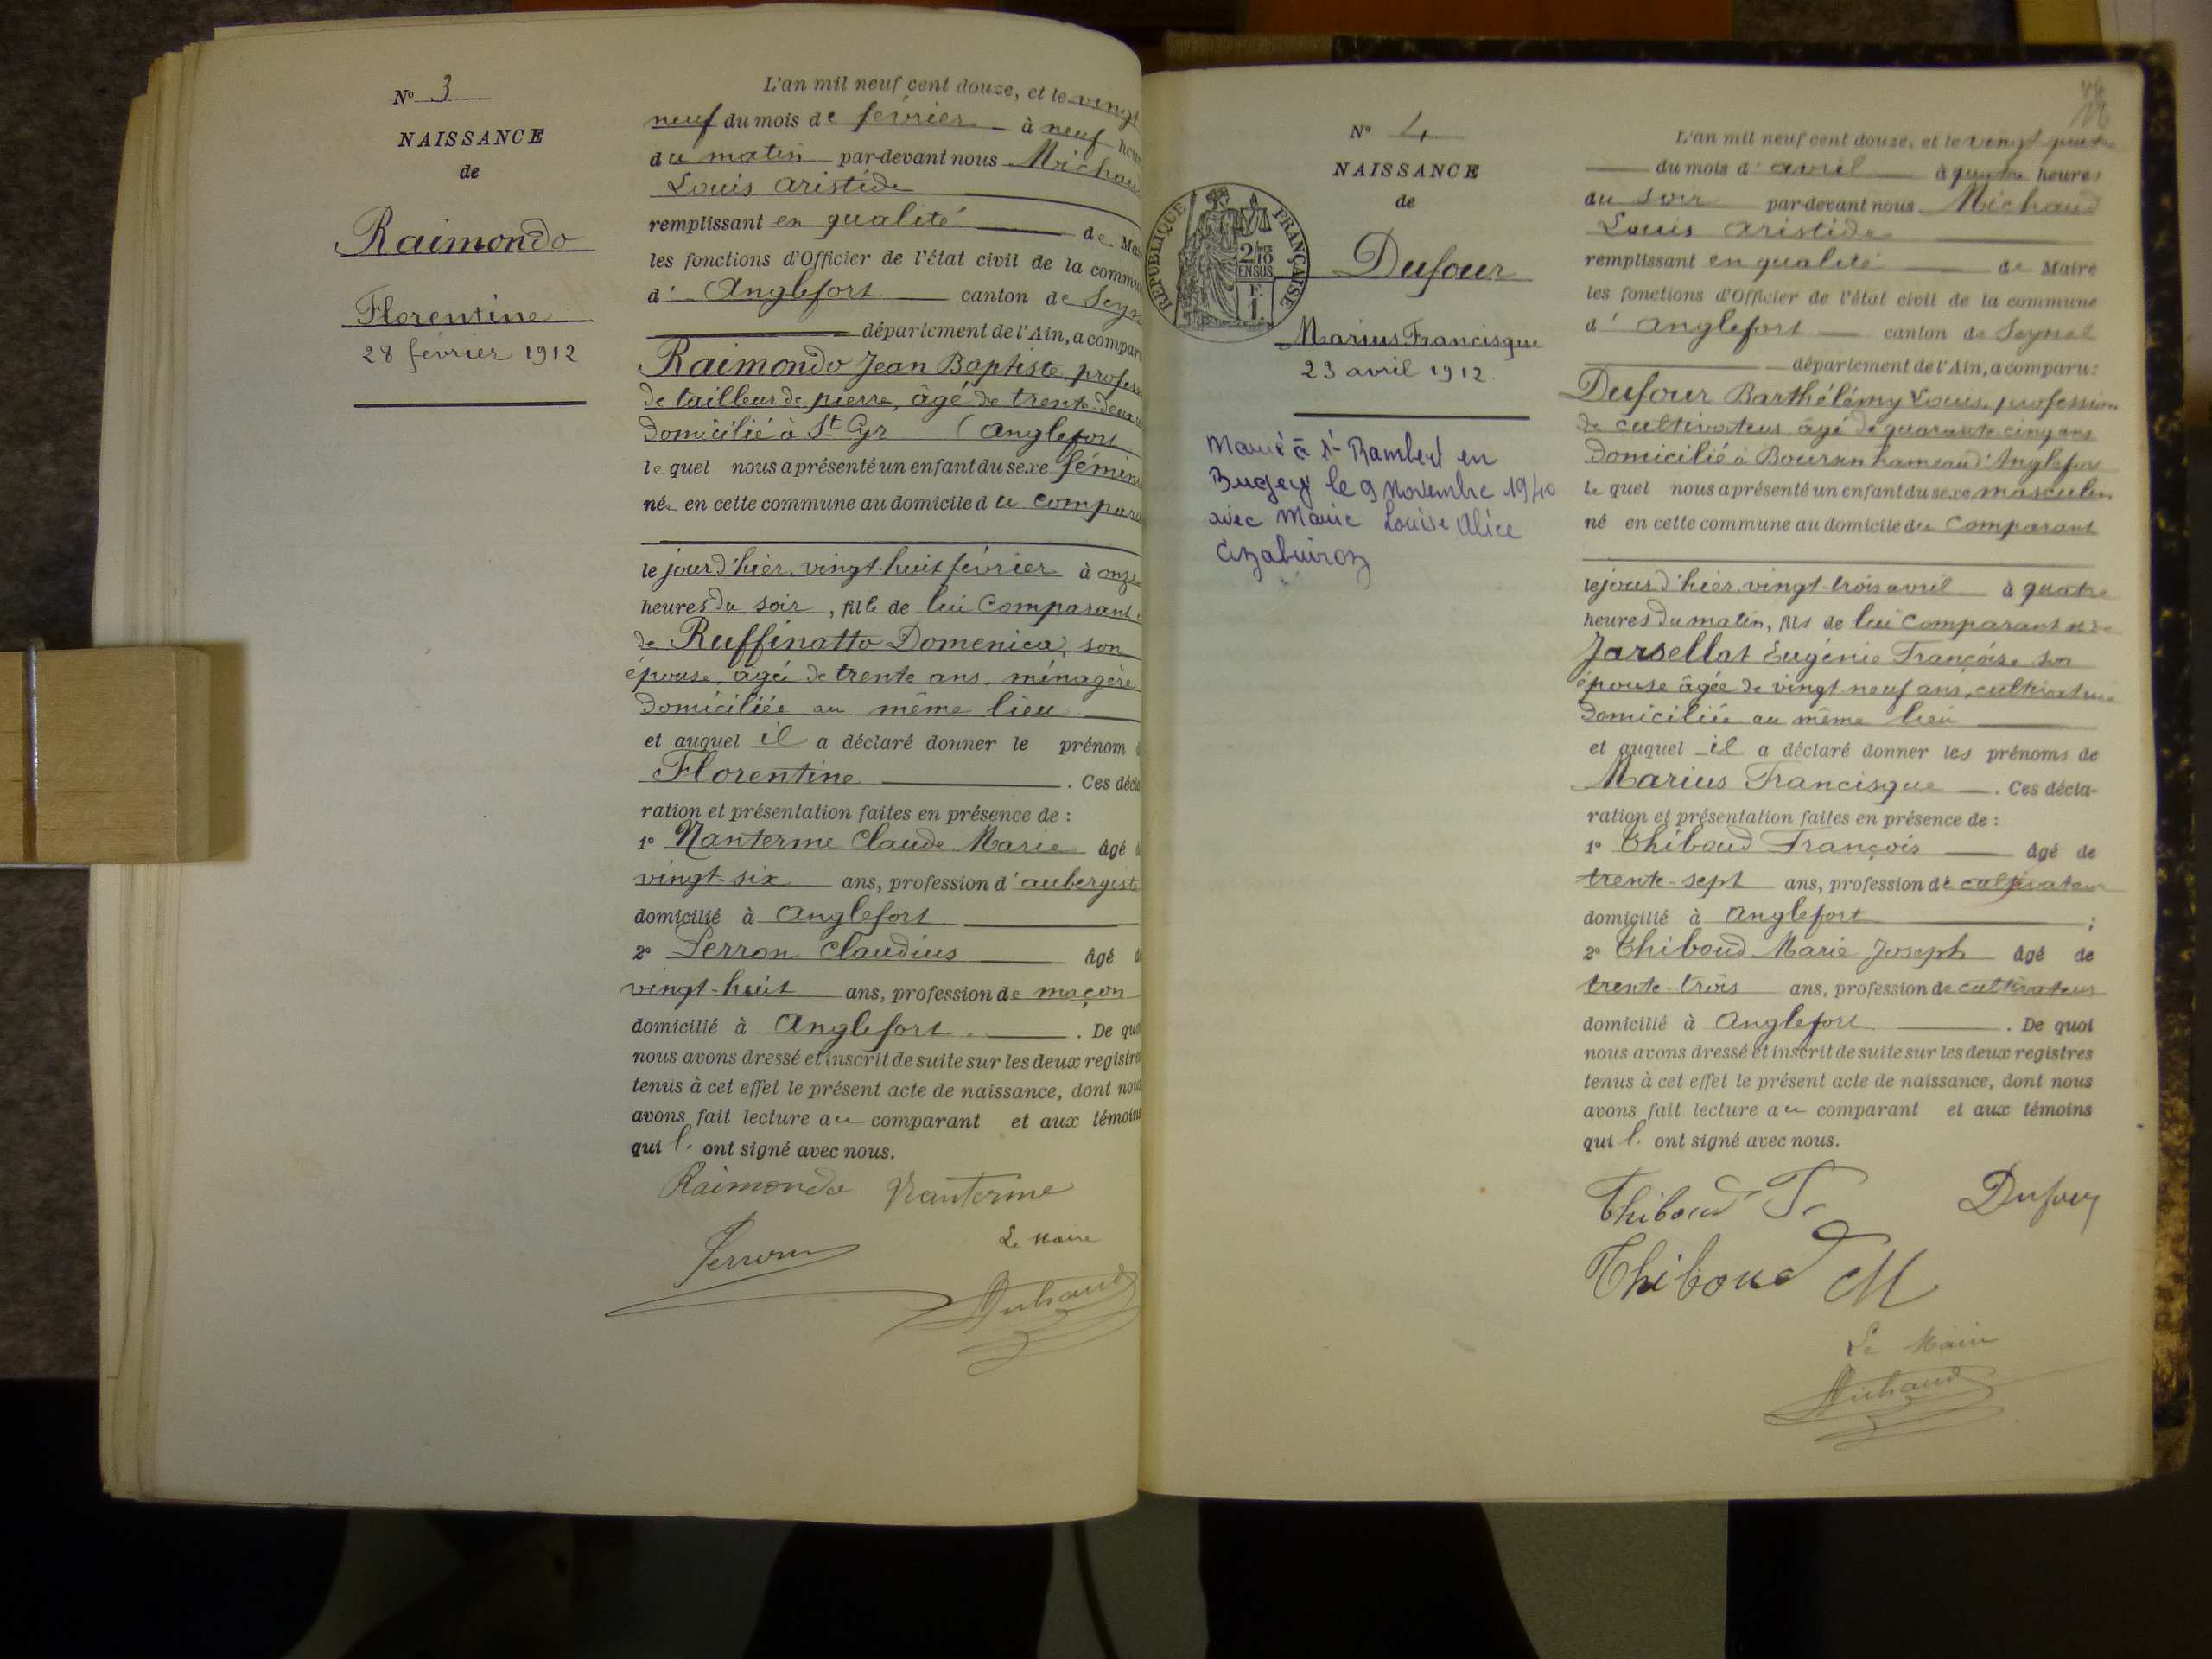 N° 3
NAISSANCE
de
Raimondo
Florentine
28 février 1912
L'an mil neuf cent douze, et le vingt
neuf du mois de février à neuf heu
du matin par-devant nous Michau
Louis Aristide
remplissant en qualité de Ma
les fonctions d'Officier de l'état civil de la commu
d' Anglefort canton de Seys
département de l'Ain, a compar
Raimondo Jean Baptiste, profess
de tailleur de pierre, âgé de trente-deux
domicilié à St Cyr (Anglefort
le quel nous a présenté un enfant du sexe fémin
née en cette commune au domicile du compara
le jour d'hier vingt-huit février à onze
heures du soir, fille de lui Comparant
de Ruffinatto Domenica, son
épouse, âgée de trente ans, ménagère
domiciliée au même lieu
et auquel il a déclaré donner le prénom
Florentine . Ces décla
ration et présentation faites en présence de :
1° Nanterme Claude Marie âgé
vingt-six ans, profession d'aubergiste
domicilié à Anglefort
2° Perron Claudius âgé
vingt-huit ans, profession de maçon
domicilié à Anglefort . De quo
nous avons dressé et inscrit de suite sur les deux registre
tenus à cet effet le présent acte de naissance, dont nou
avons fait lecture au comparant et aux témoins
qui l' ont signé avec nous.
Raimondo Nanterme
Perron Le Maire
Michaud
N° 4
NAISSANCE
de
RÉPUBLIQUE FRANÇAISE
2/10
EN SUS
F.
1.
Dufour
Marius Francisque
23 avril 1912.
Marié à St Rambert en
Bugey le 9 Novembre 1940
avec Marie Louise Alice
L'an mil neuf cent douze, et le vingt quatre
du mois d'avril à quatre heures
du soir par-devant nous Michaud
Louis Aristide
remplissant en qualité de Maire
les fonctions d'Officier de l'état civil de la commune
d' Anglefort canton de Seyssel
département de l'Ain, a comparu :
Dufour Barthélémy Louis, profession
de cultivateur âgé de quarante-cinq ans
domicilié à Boursin hameau d'Anglefort
le quel nous a présenté un enfant du sexe masculin
né en cette commune au domicile du Comparant
le jour d'hier vingt-trois avril à quatre
heures du matin, fils de lui Comparant et de
Jarsellat Eugénie Françoise son
épouse âgée de vingt neuf ans, cultivatrice
domiciliée au même lieu
et auquel il a déclaré donner les prénoms de
Marius Francisque . Ces décla-
ration et présentation faites en présence de :
1° Thiboud François âgé de
trente-sept ans, profession de cultivateur
domicilié à Anglefort ;
2° Thiboud Marie Joseph âgé de
trente-trois ans, profession de cultivateur
domicilié à Anglefort . De quoi
nous avons dressé et inscrit de suite sur les deux registres
tenus à cet effet le présent acte de naissance, dont nous
avons fait lecture au comparant et aux témoins
qui l' ont signé avec nous.
Thiboud F. Dufour
Thiboud M
Le Maire
Michaud